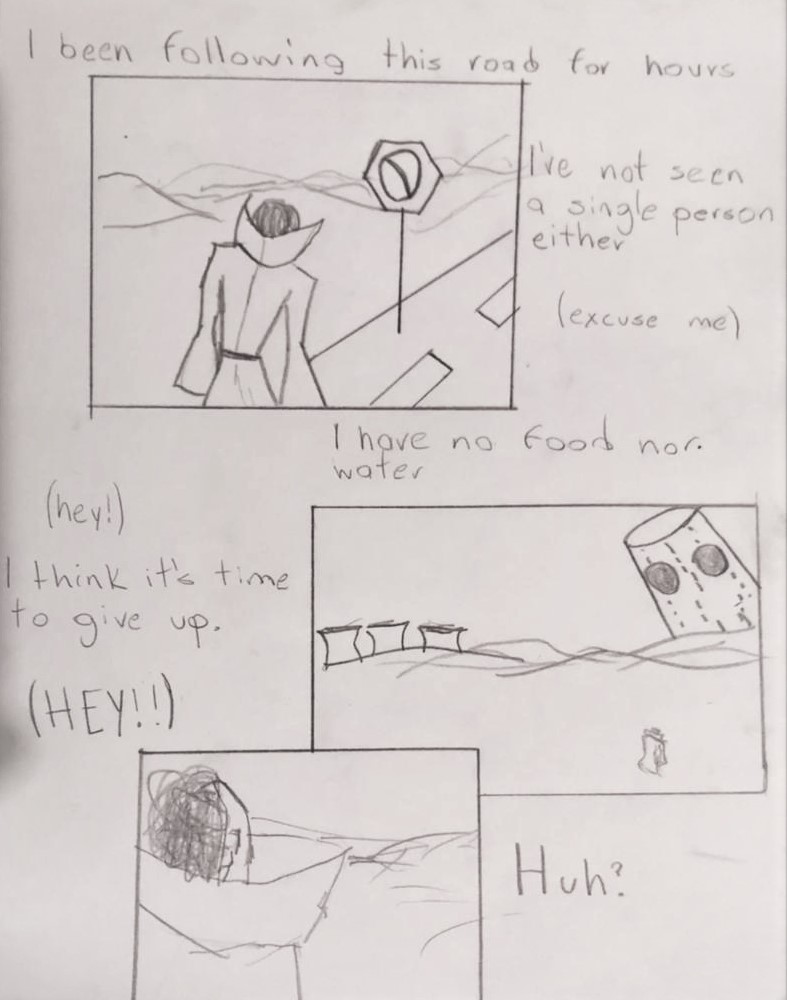 I been following this road for hours
I've not seen
a single person
either
(excuse me)
I have no food nor.
water
(hey!)
I think it's time
to give up.
(HEY!!)
Huh?